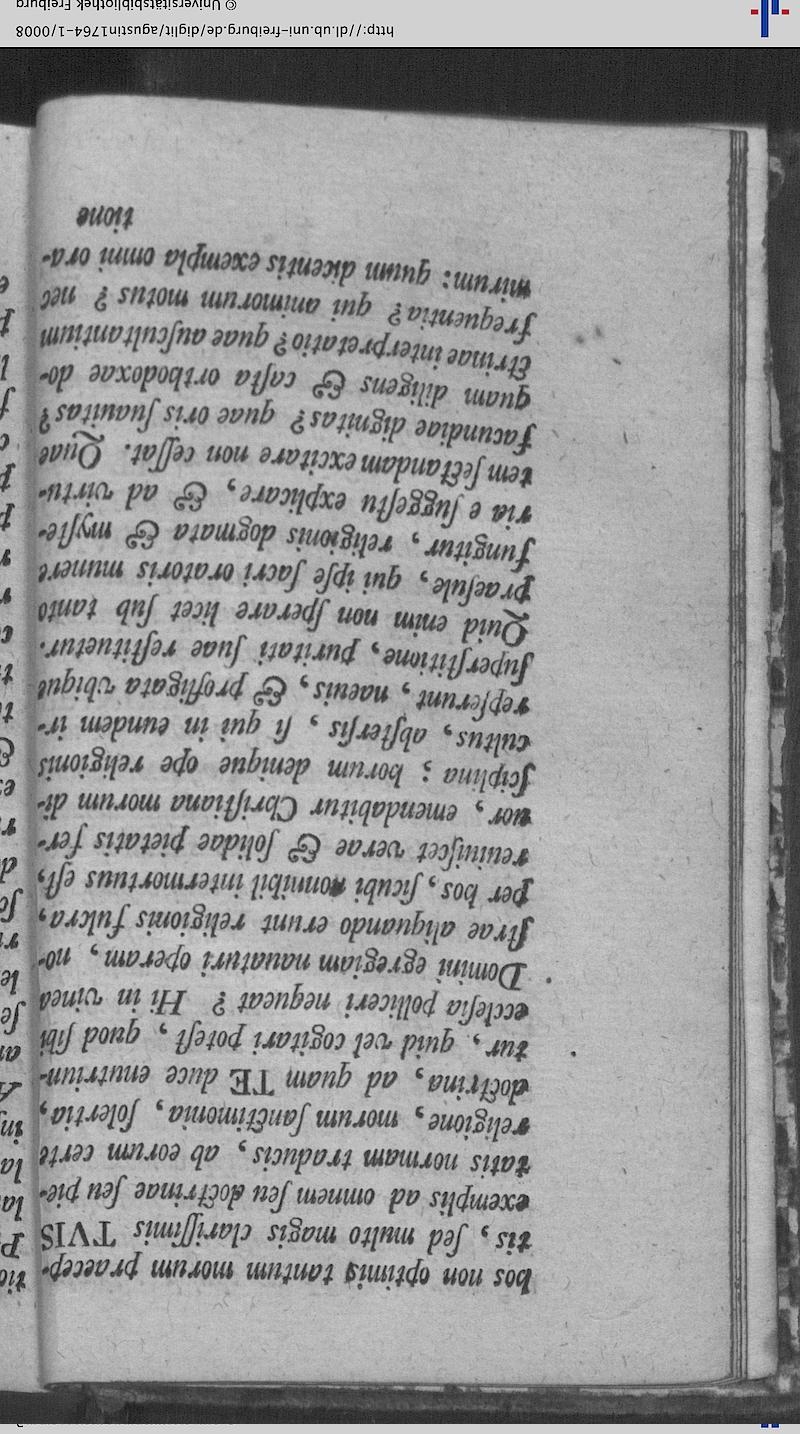 bos non optimis tantum morum praecep-
tis, ſed multo magis clariſſimis TVIS
exemplis ad omnem ſeu doctrinae ſeu pie-
tatis normam traducis, ab eorum certe
religione, morum ſanctimonia, ſolertia,
doctrina, ad quam TE duce enutriun-
tur, quid vel cogitari poteſt, quod ſibi
eccleſia polliceri nequeat? Hi in vinea
Domini egregiam nauaturi operam, no-
ſtrae aliquando erunt religionis fulcra,
per hos, ſicubi nonnihil intermortuus eſt,
reuiuiſcet verae & ſolidae pietatis fer-
uor, emendabitur Chriſtiana morum di-
ſciplina; horum denique ope religionis
cultus, abſterſis, ſi qui in eundem ir-
repſerunt, naeuis, & profligata vbique
ſuperſtitione, puritati ſuae reſtituetur.
Quid enim non ſperare licet ſub tanto
praeſule, qui ipſe ſacri oratoris munere
fungitur, religionis dogmata & myſte-
ria e ſuggeſtu explicare, & ad virtu-
tem ſectandam excitare non ceſſat. Quae
facundiae dignitas? quae oris ſuauitas?
quam diligens & caſta orthodoxae do-
ctrinae interpretatio? quae auſcultantium
frequentia? qui animorum motus? nec
mirum: quum dicentis exempla omni ora-
tione
http://dl.ub.uni-freiburg.de/diglit/agustin1764-1/0008
© Universitätsbibliothek Freiburg